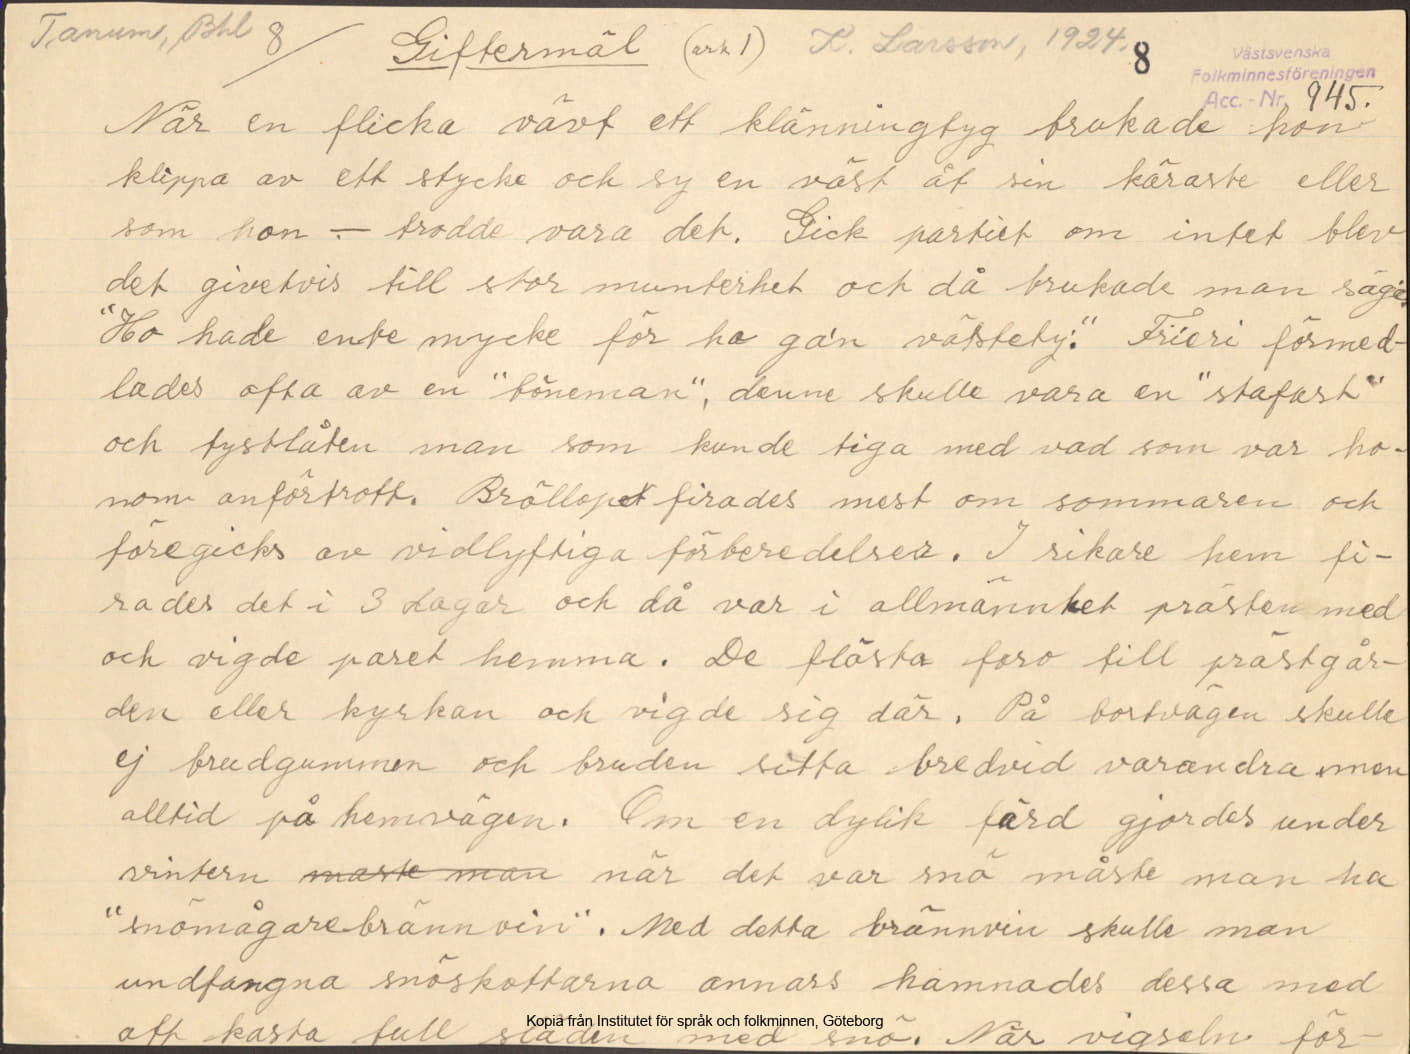 Tanum, Bhl 8 Giftermål (ark 1) K. Larsson, 1924. 8
Västsvenska
Folkminnesföreningen
Acc.-Nr. 945.
När en flicka vävt ett klänningtyg brukade hon
klippa av ett stycke och sy en väst åt sin käraste eller
som hon — trodde vara det. Gick partiet om intet blev
det givetvis till stor munterhet och då brukade man säga:
"Ho hade ente mycke för ha ga'n västety." Frieri förmed-
lades ofta av en "böneman", denne skulle vara en "stafast"
och tystlåten man som kunde tiga med vad som var ho-
nom anförtrott. Bröllopet firades mest om sommaren och
föregicks av vidlyftiga förberedelser. I rikare hem fi-
rades det i 3 dagar och då var i allmännhet prästen med
och vigde paret hemma. De flästa foro till prästgår-
den eller kyrkan och vigde sig där. På bortvägen skulle
ej brudgummen och bruden sitta bredvid varandra men
alltid på hemvägen. Om en dylik färd gjordes under
vintern maste man när det var snö måste man ha
"snömågarebrännvin". Med detta brännvin skulle man
undfangna snöskottarna annars hamnades dessa med
att kasta full släden med snö. När vigseln för-
Kopia från Institutet för språk och folkminnen, Göteborg